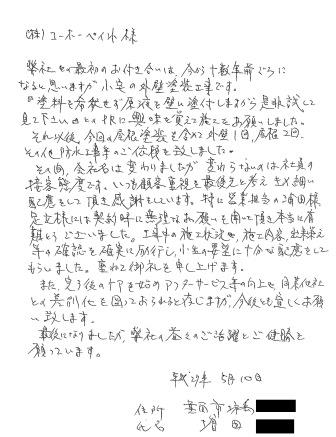 (株)ユーホーペイント様
弊社との最初のお付き合いは、今から十数年前ごろに
なると思いますが小宅の外壁塗装工事です。
『塗料を希釈せず原液を壁に塗付しますから是非試して
見て下さい』とのPRに興味を覚えて施工をお願いしました。
それ以後、今回の屋根塗装を含めて外壁1回、屋根2回、
その他防水工事等のご依頼を致しました。
その間、会社名は変わりましたが変わらないのは社員の
接客態度です。いつも顧客重視を最優先と考えきめ細い
配慮をして頂き感謝をしています。特に営業担当の
様には契約時に無理なお願いを聞いて頂き本当に有
難とうございました。工事中の施工状況や、施工内容、出来栄え
等の確認を確実に励行し、小生の要望に十分な配慮をして
もらいました。重ねて御礼を申し上げます。
また、完了後のケアを始めアフターサービス等の向上や、同業他社
との差別化を図っておられると存じますが、今後とも宜しくお願
い致します。
最後になりましたが、弊社の益々のご活躍とご健勝を
願っています。
平成29年 5月10日
住所
氏名 増田